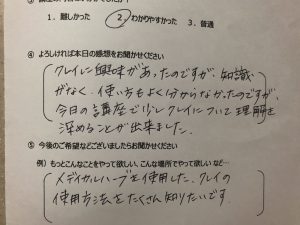 1. 難しかった 2. わかりやすかった 3. 普通
④ よろしければ本日の感想をお聞かせください
クレイに興味があったのですが、知識
がなく、使い方もよく分からなかったのですが、
今日の講座で少しクレイについて理解を
深めることが出来ました。
⑤ 今後のご希望などございましたらお聞かせください
例）もっとこんなことをやって欲しい、こんな場所でやって欲しいなど…
メディカルハーブを使用した、クレイの
使用方法をたくさん知りたいです。